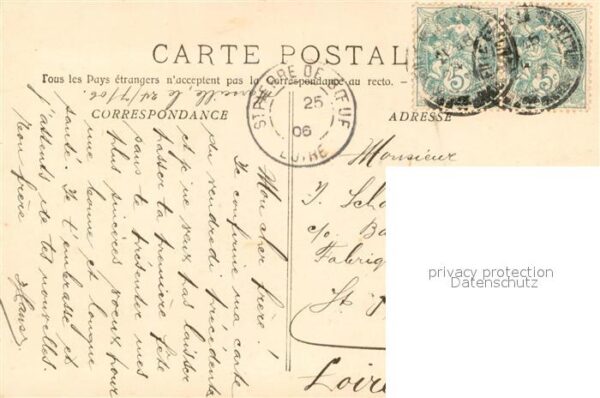 CARTE POSTAL
Tous les Pays étrangers n'acceptent pas la Correspondance au recto.
CORRESPONDANCE
ADRESSE
ST PIERRE DE BŒUF
25
06
LOIRE
5
5
Marseille, le 24/7/06
Mon cher frère!
Je confirme ma carte
du vendredi précédente
et je ne veux pas laisser
passer ta première fête
sans te présenter mes
plus sincères voeux pour
une bonne et longue
santé. Je t'embrasse et
j'attends de tes nouvelles
Ton frère
Hans
Monsieur
J. Scho
c/o Ba
Fabriq
St. P
Loire
privacy protection
Datenschutz